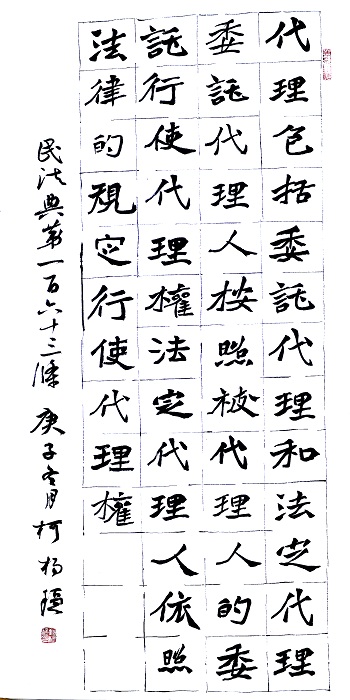 代理包括委託代理和法定代理
委託代理人按照被代理人的委
託行使代理權法定代理人依照
法律的規定行使代理權
民法典第一百六十三條 庚子冬月 柯楊